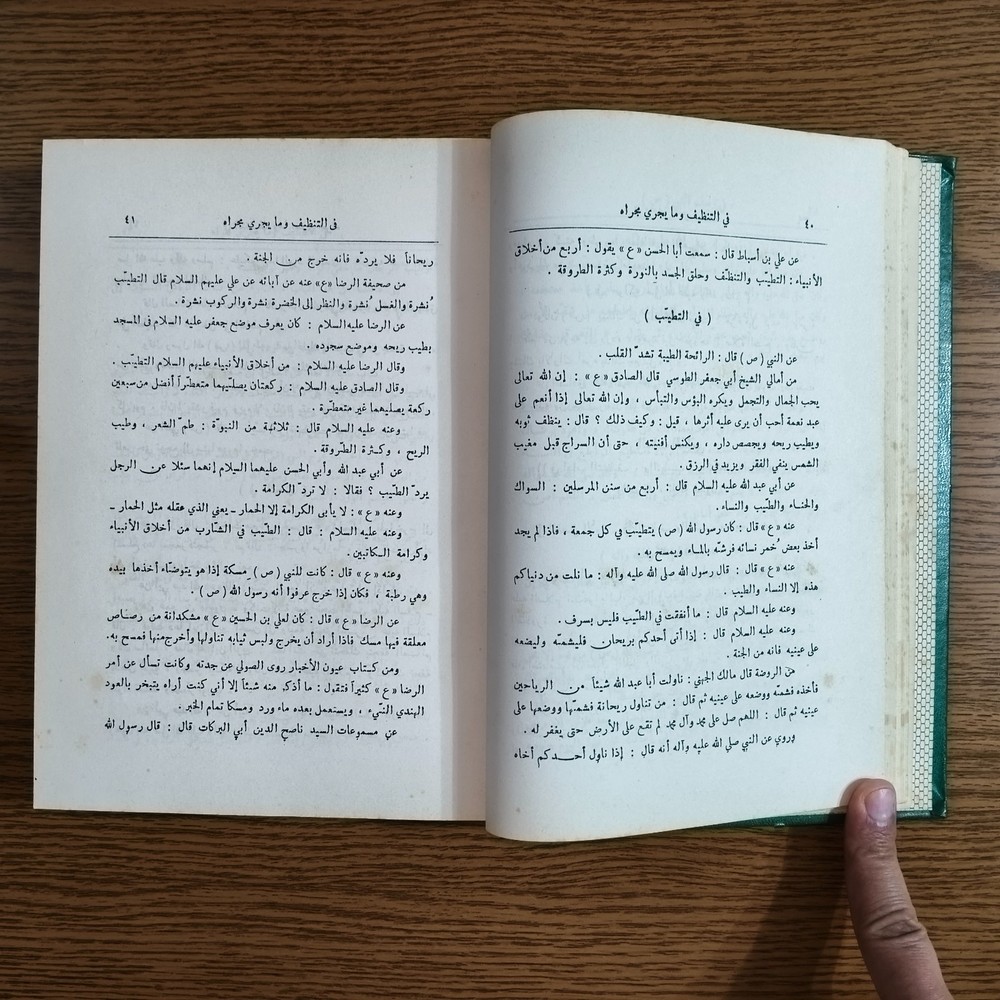 ٤٠
في التنظيف وما يجري مجراه
عن علي بن أسباط قال : سمعت أبا الحسن « ع » يقول : أربع من أخلاق
الأنبياء : التطيّب والتنظّف وحلق الجسد بالنورة وكثرة الطروقة .
( في التطيّب )
عن النبي ( ص ) قال : الرائحة الطيبة تشدّ القلب .
من أمالي الشيخ أبي جعفر الطوسي قال الصادق « ع » : إن الله تعالى
يحب الجمال والتجمل ويكره البؤس والتبأس ، وإن الله تعالى إذا أنعم على
عبد نعمة أحب أن يرى عليه أثرها ، قيل : وكيف ذلك ؟ قال : ينظف ثوبه
ويطيب ريحه ويجصص داره ، ويكنس أفنيته ، حتى أن السراج قبل مغيب
الشمس ينفي الفقر ويزيد في الرزق .
عن أبي عبد الله عليه السلام قال : أربع من سنن المرسلين : السواك
والحناء والطّيب والنساء .
عنه « ع » قال : كان رسول الله ( ص ) يتطيّب في كل جمعة ، فاذا لم يجد
أخذ بعض خُمر نسائه فرشّه بالماء ويمسح به .
عنه « ع » قال : قال رسول الله صلى الله عليه وآله : ما نلت من دنياكم
هذه إلا النساء والطيب .
وعنه عليه السلام قال : ما أنفقت في الطّيب فليس بسرف .
وعنه عليه السلام قال : إذا أتى أحدكم بريحان فليشمّه وليضعه
على عينيه فانه من الجنة .
من الروضة قال مالك الجهني : ناولت أبا عبد الله شيئاً من الرياحين
فأخذه فشمّه ووضعه على عينيه ثم قال : من تناول ريحانة فشمّها ووضعها على
عينيه ثم قال : اللهم صل على محمد وآل محمد لم تقع على الأرض حتى يغفر له .
وروي عن النبي صلى الله عليه وآله أنه قال : إذا ناول أحدكم أخاه
في التنظيف وما يجري مجراه
٤١
ريحاناً فلا يردّه فانه خرج من الجنة .
من صحيفة الرضا « ع » عنه عن آبائه عن علي عليهم السلام قال التطيّب
نُشرة والغسل نُشرة والنظر إلى الخضرة نشرة والركوب نشرة .
عن الرضا عليه السلام : كان يعرف موضع جعفر عليه السلام في المسجد
بطيب ريحه وموضع سجوده .
وقال الرضا عليه السلام : من أخلاق الأنبياء عليهم السلام التطيّب .
وقال الصادق عليه السلام : ركعتان يصلّيهما متعطّراً أفضل من سبعين
ركعة يصليهما غير متعطّرة .
وعنه عليه السلام قال : ثلاثة من النبوّة : طمّ الشعر ، وطيب
الريح ، وكثرة الطّروقة .
عن أبي عبد الله وأبي الحسن عليهما السلام إنهما سئلا عن الرجل
يردّ الطّيب ؟ فقالا : لا تردّ الكرامة .
وعنه « ع » : لا يأبى الكرامة إلا الحمار ـ يعني الذي عقله مثل الحمار ـ
وعنه عليه السلام : قال : الطّيب في الشّارب من أخلاق الأنبياء
وكرامة الكاتبين .
وعنه « ع » قال : كانت للنبي ( ص ) مِسكة إذا هو يتوضّاء أخذها بيده
وهي رطبة ، فكان إذا خرج عرفوا أنه رسول الله ( ص ) .
عن الرضا « ع » قال : كان لعلي بن الحسين « ع » مشكدانة من رصاص
معلقة فيها مسك فاذا أراد أن يخرج ولبس ثيابه تناولها وأخرج منها فمسح به .
ومن كتاب عيون الأخبار روى الصولي عن جدته وكانت تسأل عن أمر
الرضا « ع » كثيراً فتقول : ما أذكر منه شيئاً إلا أني كنت أراه يتبخر بالعود
الهندي النّيء ، ويستعمل بعده ماء ورد ومسكا تمام الخبر .
عن مسموعات السيد ناصح الدين أبي البركات قال : قال رسول الله